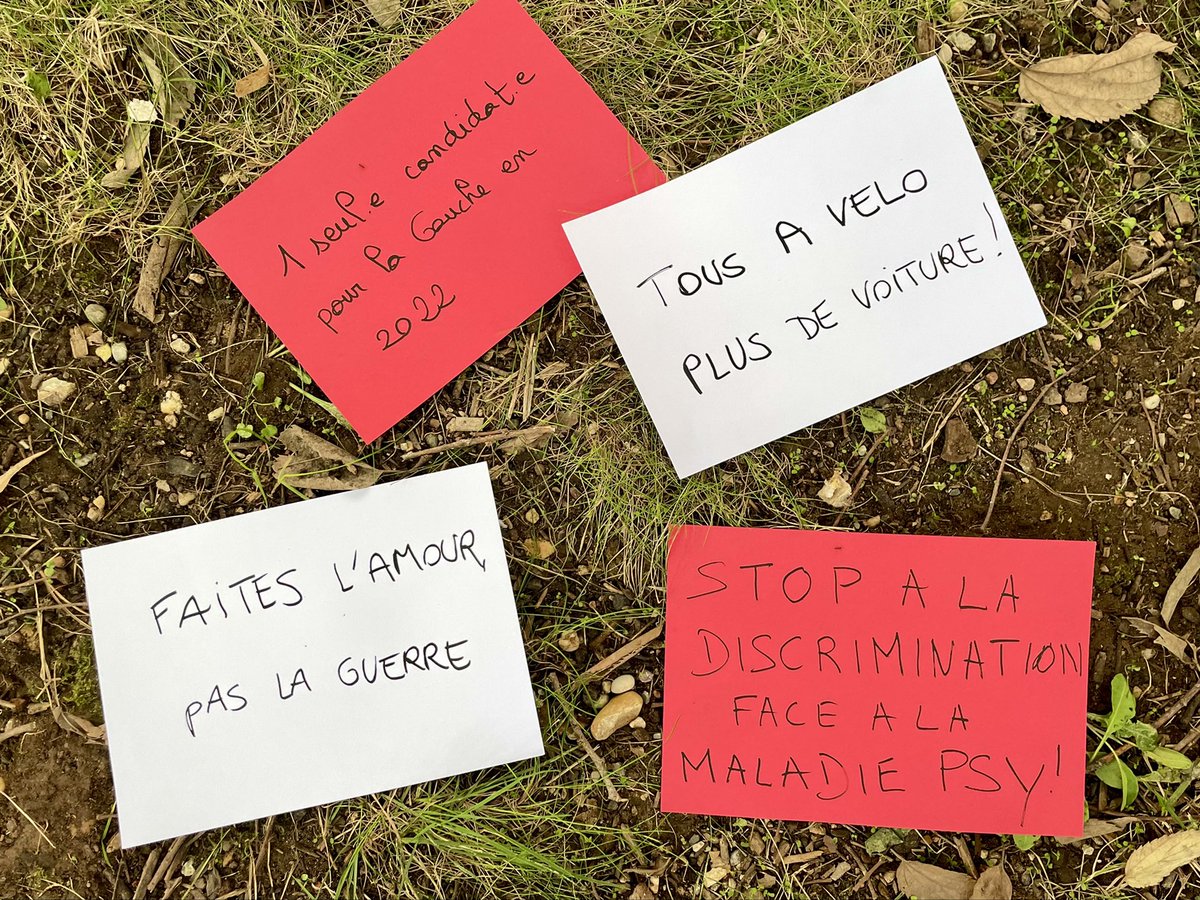 1 seul.e candidat.e
pour la Gauche en
2022
TOUS A VELO
PLUS DE VOITURE!
FAITES L'AMOUR
PAS LA GUERRE
STOP A LA
DISCRIMINATION
FACE A LA
MALADIE PSY!